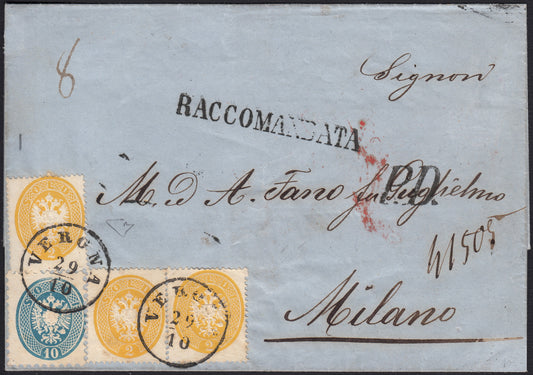 8
Signori
RACCOMANDATA
P.D.
M. d A. Fano fu Guglielmo
41505
Milano
VERONA
29
10
VERO
29
10
10
2
2